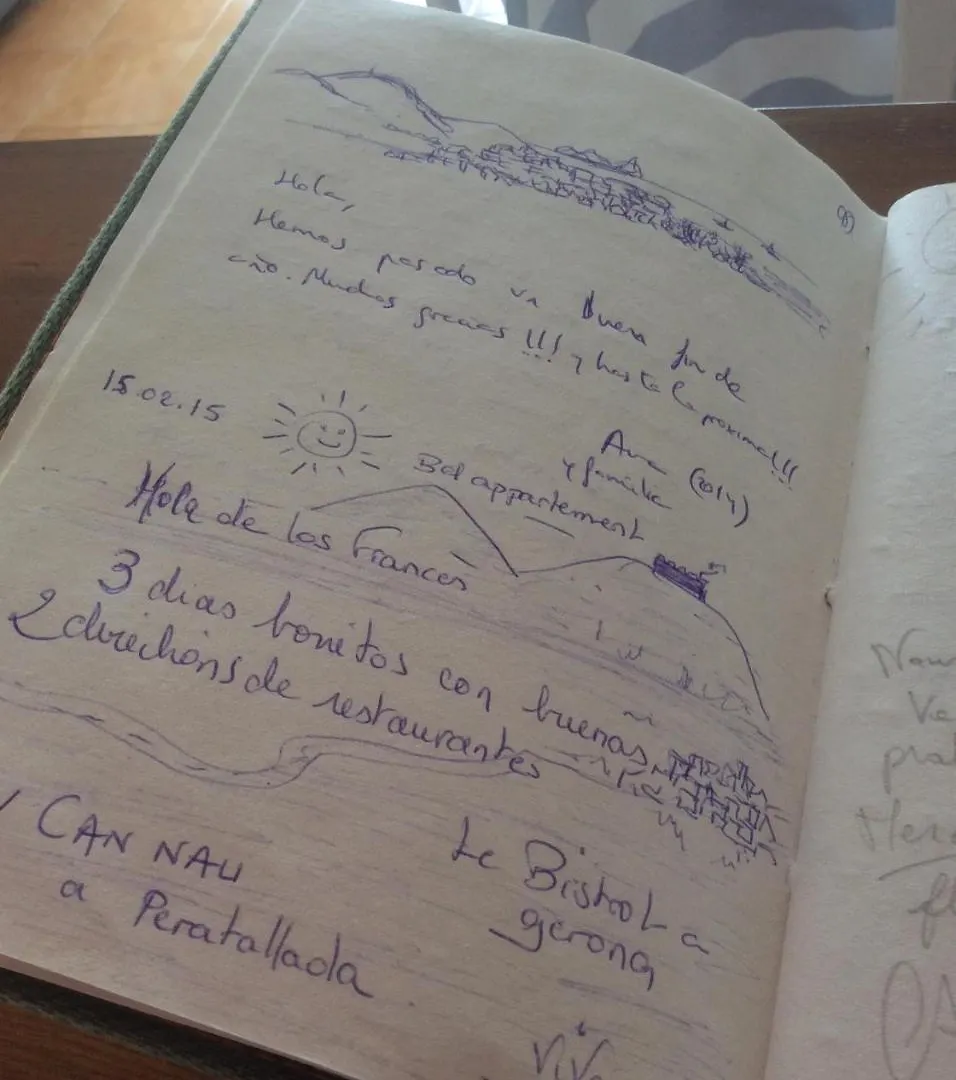 Hola,
Hemos pasado un buen fin de
año. Muchas gracias !!! y hasta la proxima!!!
Ana (2014)
y familia
15.02.15
Bel appartement
Hola de los frances
3 dias bonitos con buenas
2 directions de restaurantes
CAN NAU
a Peratallada
Le Bistrot a
gerona